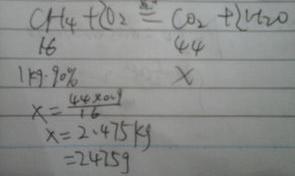 CH4 + 2O2 = CO2 + 2H2O
16 44
1kg·90% X
x = 44×0.9/16
x = 2.475kg
= 2475g